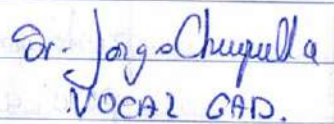 Dr. Jorge Chuquilla
VOCAL GAD.